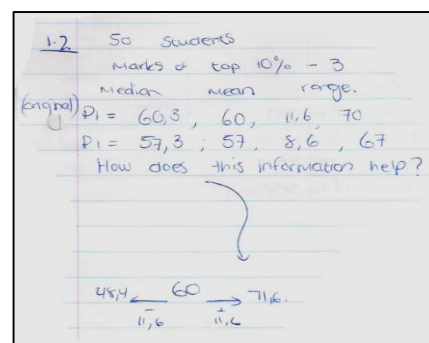 1.2 50 Students
Marks of top 10% - 3
Median Mean range.
(Original) P1 = 60,3 , 60, 11,6, 70
P1 = 57,3 ; 57, 8,6 , 67
How does this information help?
48,4 ← 60 → 71,6.
- +
11,6 11,6